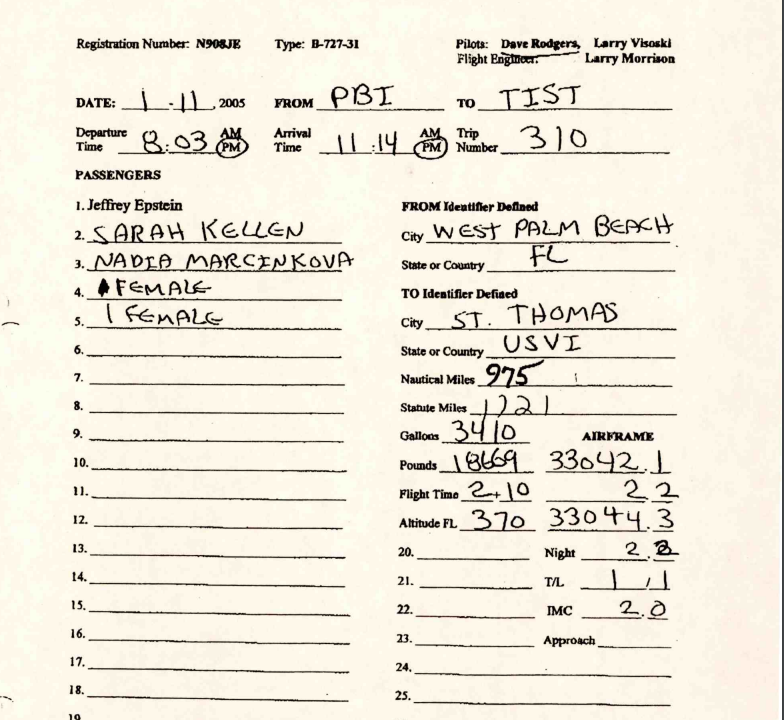 Registration Number: N908JE Type: B-727-31 Pilots: Dave Rodgers, Larry Visoski
Flight Engineer: Larry Morrison
DATE: 1-11, 2005 FROM PBI TO TIST
Departure Time 8:03 AM PM Arrival Time 11:14 AM PM Trip Number 310
PASSENGERS
1. Jeffrey Epstein
2. SARAH KELLEN
3. NADIA MARCINKOVA
4. 1 FEMALE
5. 1 FEMALE
6.
7.
8.
9.
10.
11.
12.
13.
14.
15.
16.
17.
18.
19.
FROM Identifier Defined
City WEST PALM BEACH
State or Country FL
TO Identifier Defined
City ST. THOMAS
State or Country USVI
Nautical Miles 975
Statute Miles 1121
Gallons 3410 AIRFRAME
Pounds 18669 33042.1
Flight Time 2+10 2 2
Altitude FL 370 33044.3
20. Night 2.2
21. T/L 1 / 1
22. IMC 2.0
23. Approach
24.
25.